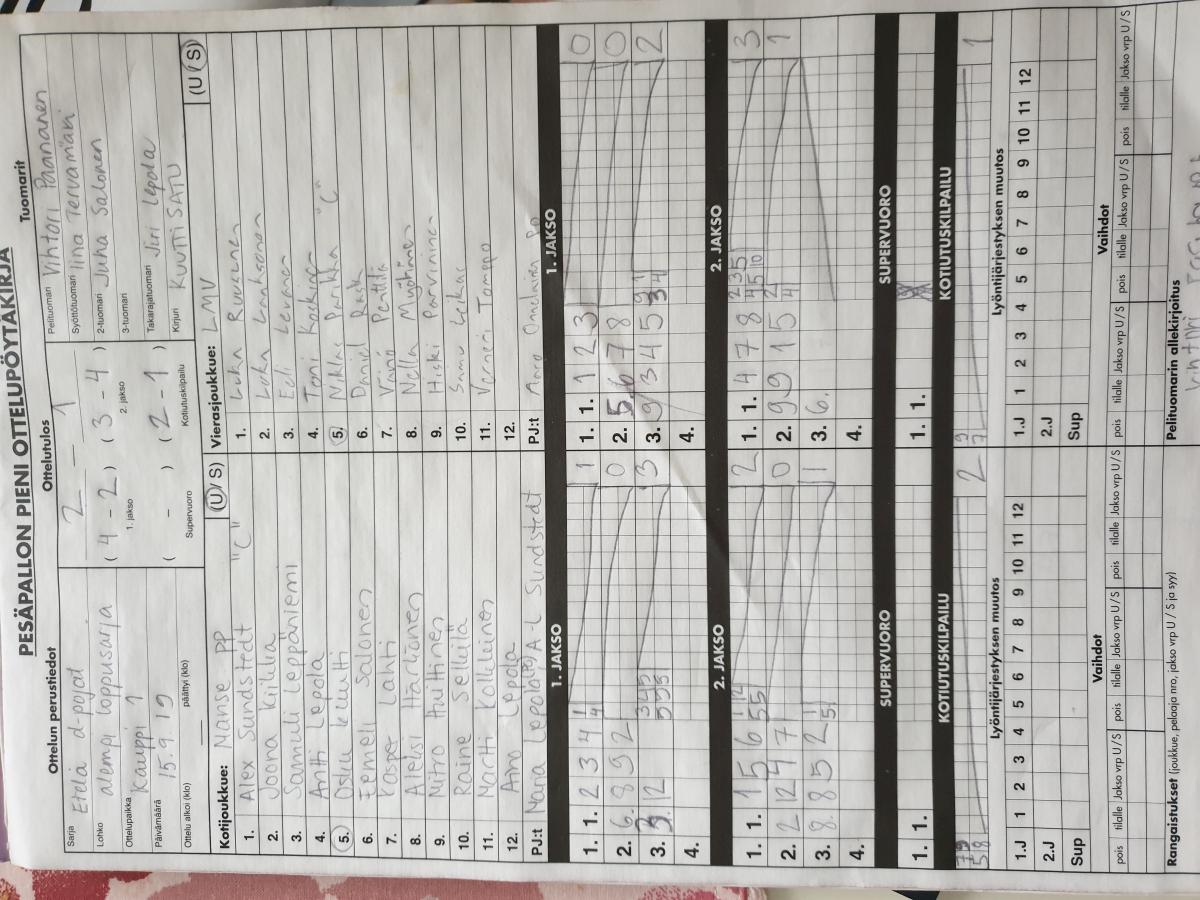 PESÄPALLON PIENI OTTELUPÖYTÄKIRJA
Ottelun perustiedot
Sarja Etelä d-pojat
Lohko alempi loppusarja
Ottelupaikka Kauppi 1
Päivämäärä 15.9.19
Ottelu alkoi (klo) päättyi (klo)
Ottelutulos
2 - 1
( 4 - 2 ) ( 3 - 4 )
1. jakso 2. jakso
( - ) ( 2 - 1 )
Supervuoro Kotiutuskilpailu
Tuomarit
Pelituomari Vihtori Paananen
Syöttötuomari Iina Tervamäki
2-tuomari Juha Salonen
3-tuomari
Takarajatuomari Jiri Lepola
Kirjuri KUUTTI SATU
Kotijoukkue: Manse PP (U/S)
1. Alex Sundstedt "C"
2. Joona Kiilila
3. Samuli Leppäniemi
4. Antti Lepola
5. Osku Kuutti
6. Eemeli Salonen
7. Kasper Lahti
8. Aleksi Härkönen
9. Niro Huittinen
10. Raine Selkelä
11. Martti Kolkkinen
12. Aino Lepola
PJ:t Nana Lepola A-L Sundstedt
Vierasjoukkue: LMV (U/S)
1. Luka Ruusunen
2. Luka Laaksonen
3. Eeli Levonen
4. Toni Koskinen
5. Niklas Parikka "C"
6. Daniel Rask
7. Väinö Penttilä
8. Nella Myöhänen
9. Hiski Parviainen
10. Samu Leikas
11. Verneri Tomppo
12.
PJ:t
1. JAKSO
1. 1. 2 3 4 1
2. 6. 8 9 2 0
3. 3. 12 3
4.
1. JAKSO
1. 1. 1 2 3 0
2. 5. 6 7 8 0
3. 9 3 4 5 2
4.
2. JAKSO
1. 1. 1 5 6 2
2. 2 12 4 7 0
3. 8. 8 5 2 1
4.
2. JAKSO
1. 1. 4 7 8 3
2. 9 9 1 5 1
3. 6.
4.
SUPERVUORO
1. 1.
SUPERVUORO
1. 1.
KOTIUTUSKILPAILU
2
KOTIUTUSKILPAILU
1
Lyöntijärjestyksen muutos
1.J 1 2 3 4 5 6 7 8 9 10 11 12
2.J
Sup
Lyöntijärjestyksen muutos
1.J 1 2 3 4 5 6 7 8 9 10 11 12
2.J
Sup
Vaihdot
pois tilalle Jakso vrp U/S pois tilalle Jakso vrp U/S pois tilalle Jakso vrp U/S
Vaihdot
pois tilalle Jakso vrp U/S pois tilalle Jakso vrp U/S pois tilalle Jakso vrp U/S
Rangaistukset (joukkue, pelaaja nro, jakso vrp U / S ja syy)
Pelituomarin allekirjoitus